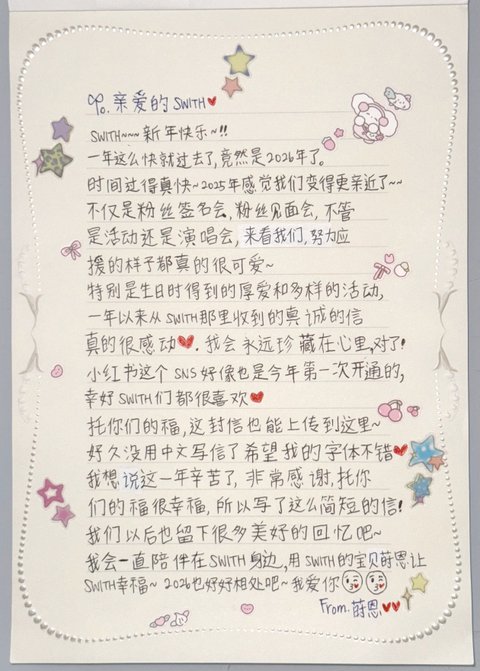 To. 亲爱的 SWITH♥
SWITH~~~ 新年快乐~!!
一年这么快就过去了,竟然是2026年了。
时间过得真快~2025年感觉我们变得更亲近了~~
不仅是粉丝签名会,粉丝见面会,不管
是活动还是演唱会,来看我们,努力应
援的样子都真的很可爱~
特别是生日时得到的厚爱和多样的活动,
一年以来从SWITH那里收到的真诚的信
真的很感动♥.我会永远珍藏在心里,对了!
小红书这个 SNS好像也是今年第一次开通的,
幸好SWITH们都很喜欢♥
托你们的福,这封信也能上传到这里~
好久没用中文写信了希望我的字体不错♥
我想说这一年辛苦了,非常感谢,托你
们的福很幸福,所以写了这么简短的信!
我们以后也留下很多美好的回忆吧~
我会一直陪伴在SWITH身边,用SWITH的宝贝莳恩让
SWITH幸福~ 2026也好好相处吧~我爱你
From.莳恩♥♥